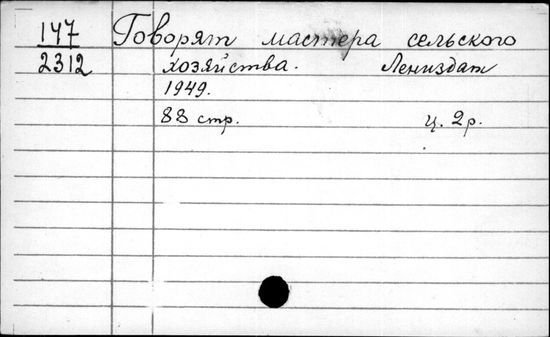 147 Говорят мастера сельского
2312 хозяйства. Лениздат
1949.
88 стр. ц. 2р.